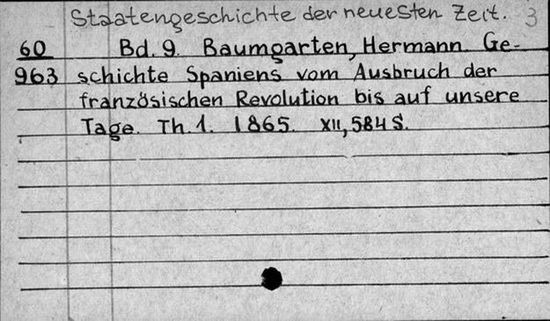 Staatengeschichte der neuesten Zeit. 3
60 Bd. 9. Baumgarten, Hermann. Ge-
963 schichte Spaniens vom Ausbruch der
französischen Revolution bis auf unsere
Tage. Th. 1. 1865. XII, 584 S.